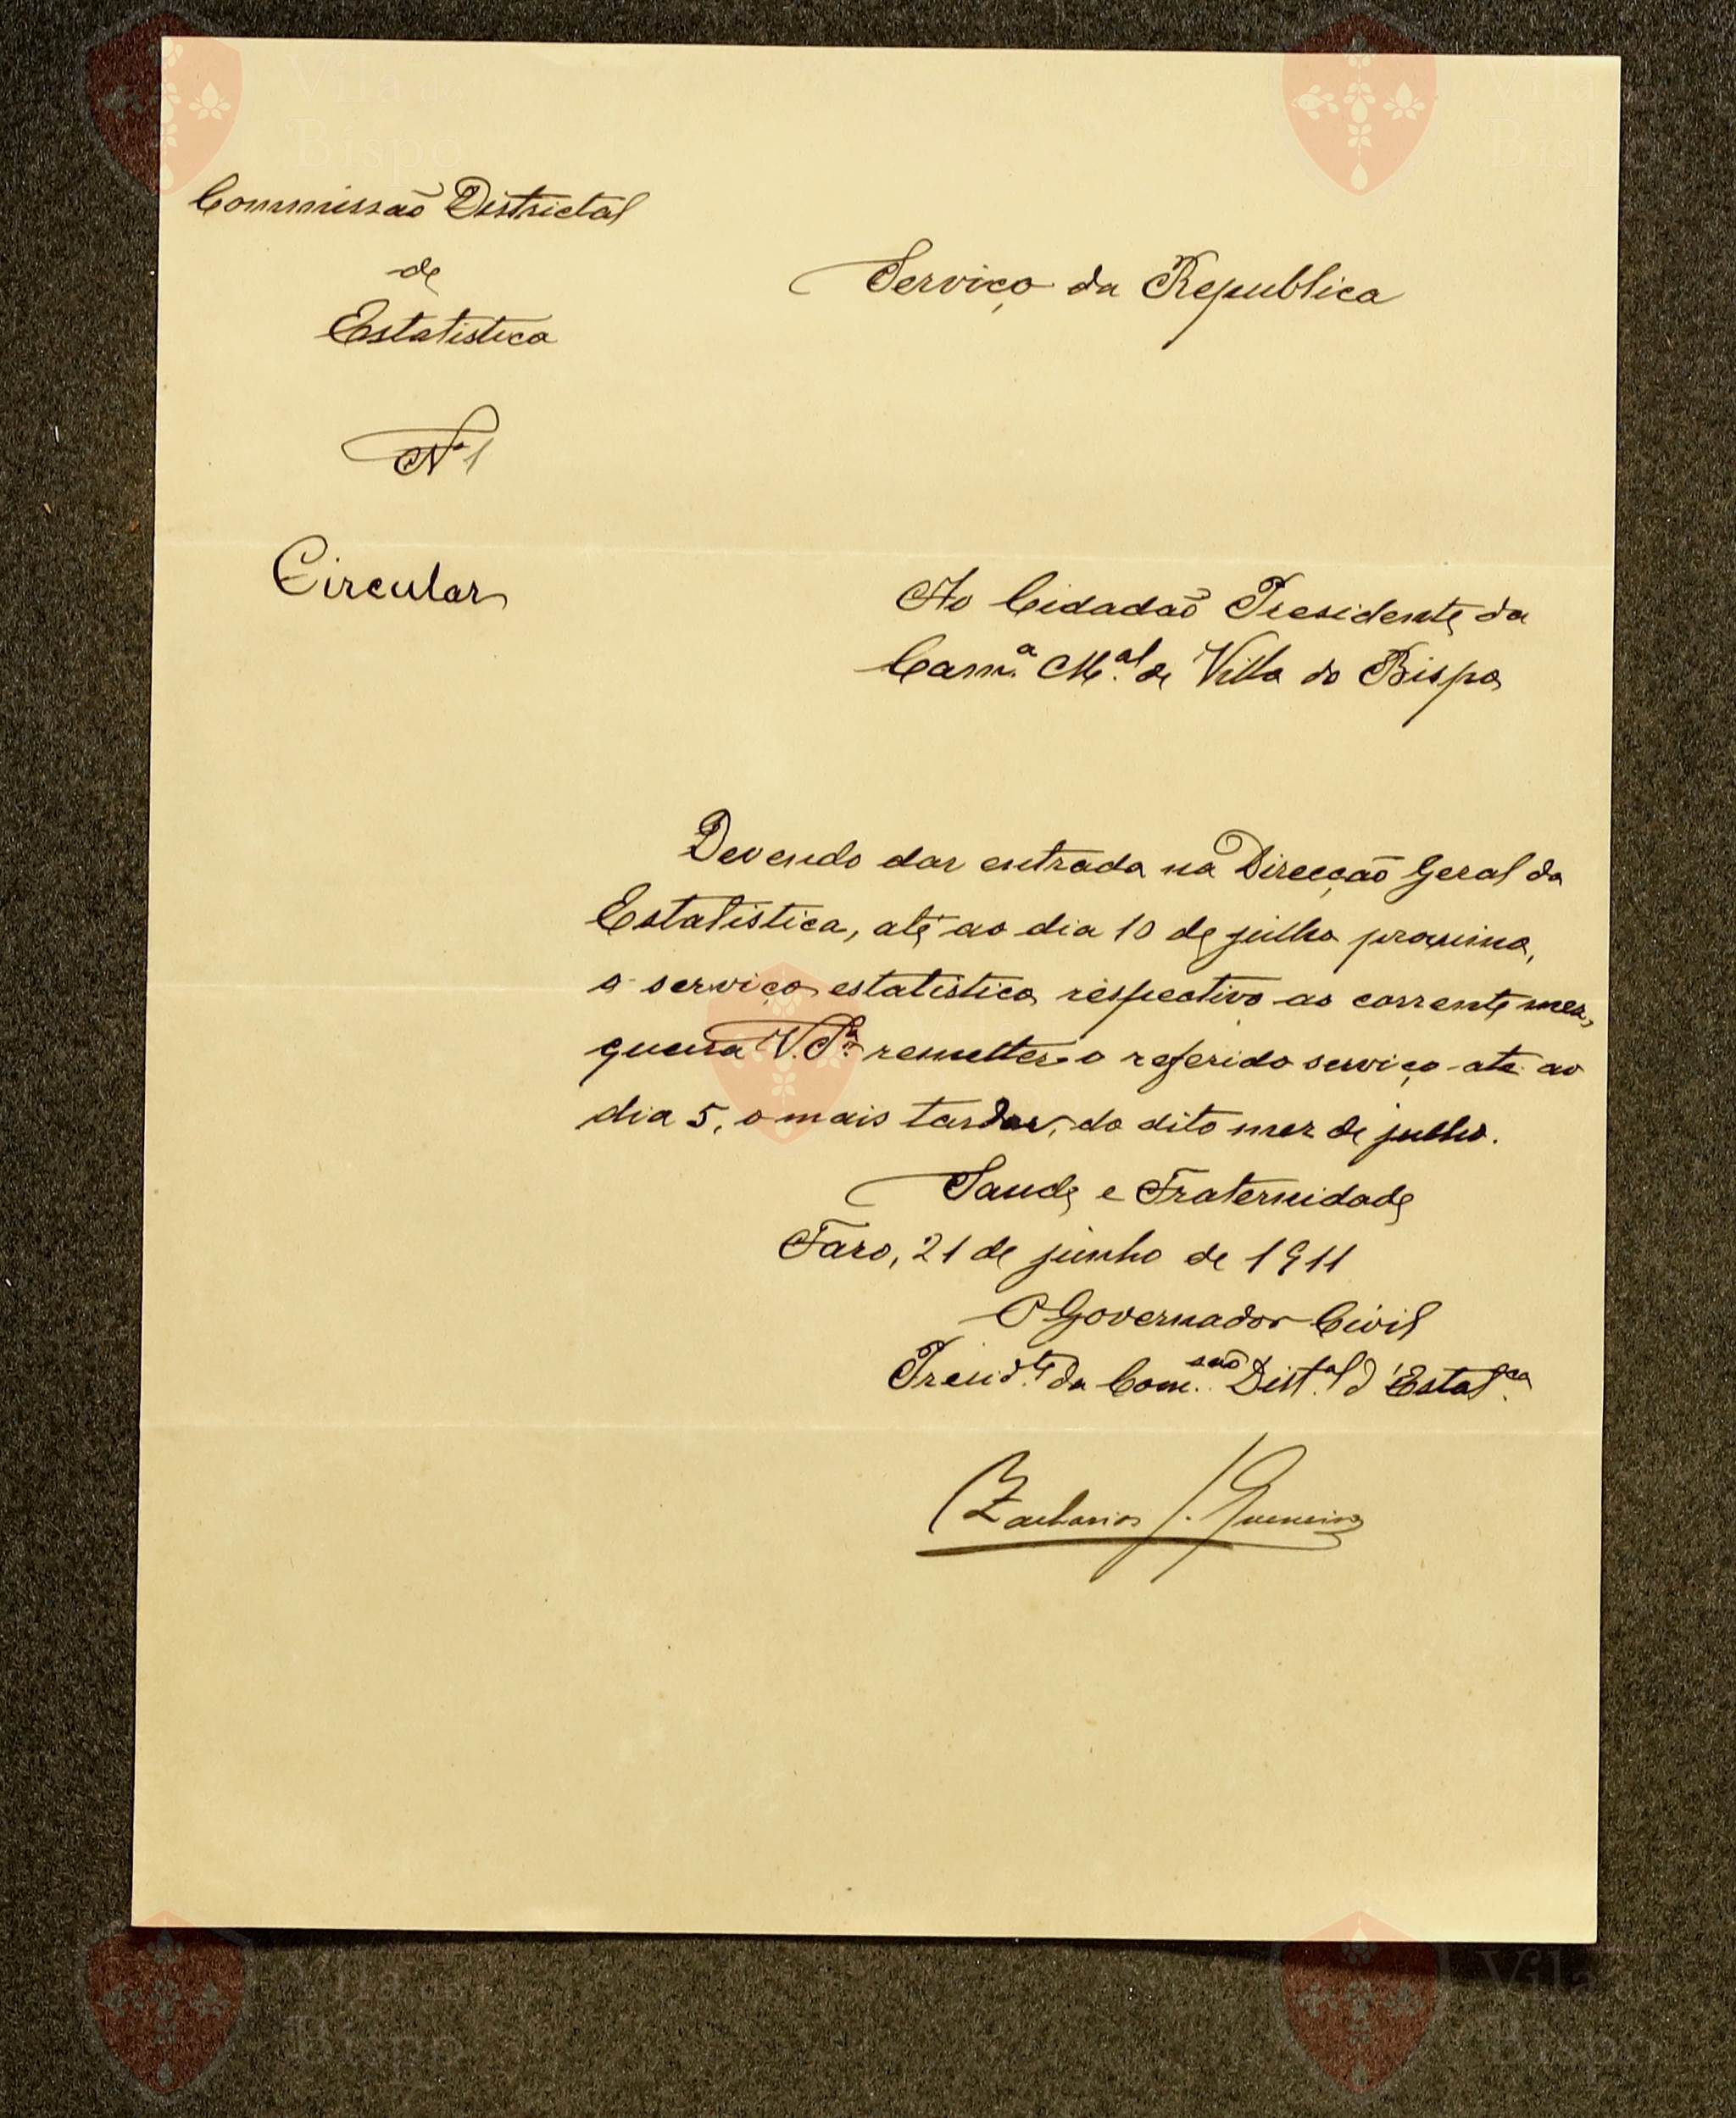 Commissão Districtal
de
Estatistica
Nº 1
Circular
Serviço da Republica
Ao Cidadão Presidente da
Camª. Mal. de Villa do Bispo
Devendo dar entrada na Direcção Geral da
Estatistica, até ao dia 10 de julho proximo,
o serviço estatistico respectivo ao corrente mez,
queira V. Sª. remetter o referido serviço até ao
dia 5, o mais tardar, do dito mez de julho.
Saude e Fraternidade
Faro, 21 de junho de 1911
O Governador Civil
Presidte. da Com.são Dist.al d'Estat.ca
Zacharias J. Guerreiro
Vila do
Bispo
Vila
Bispo
Vila do
Bispo
Vila
Bispo